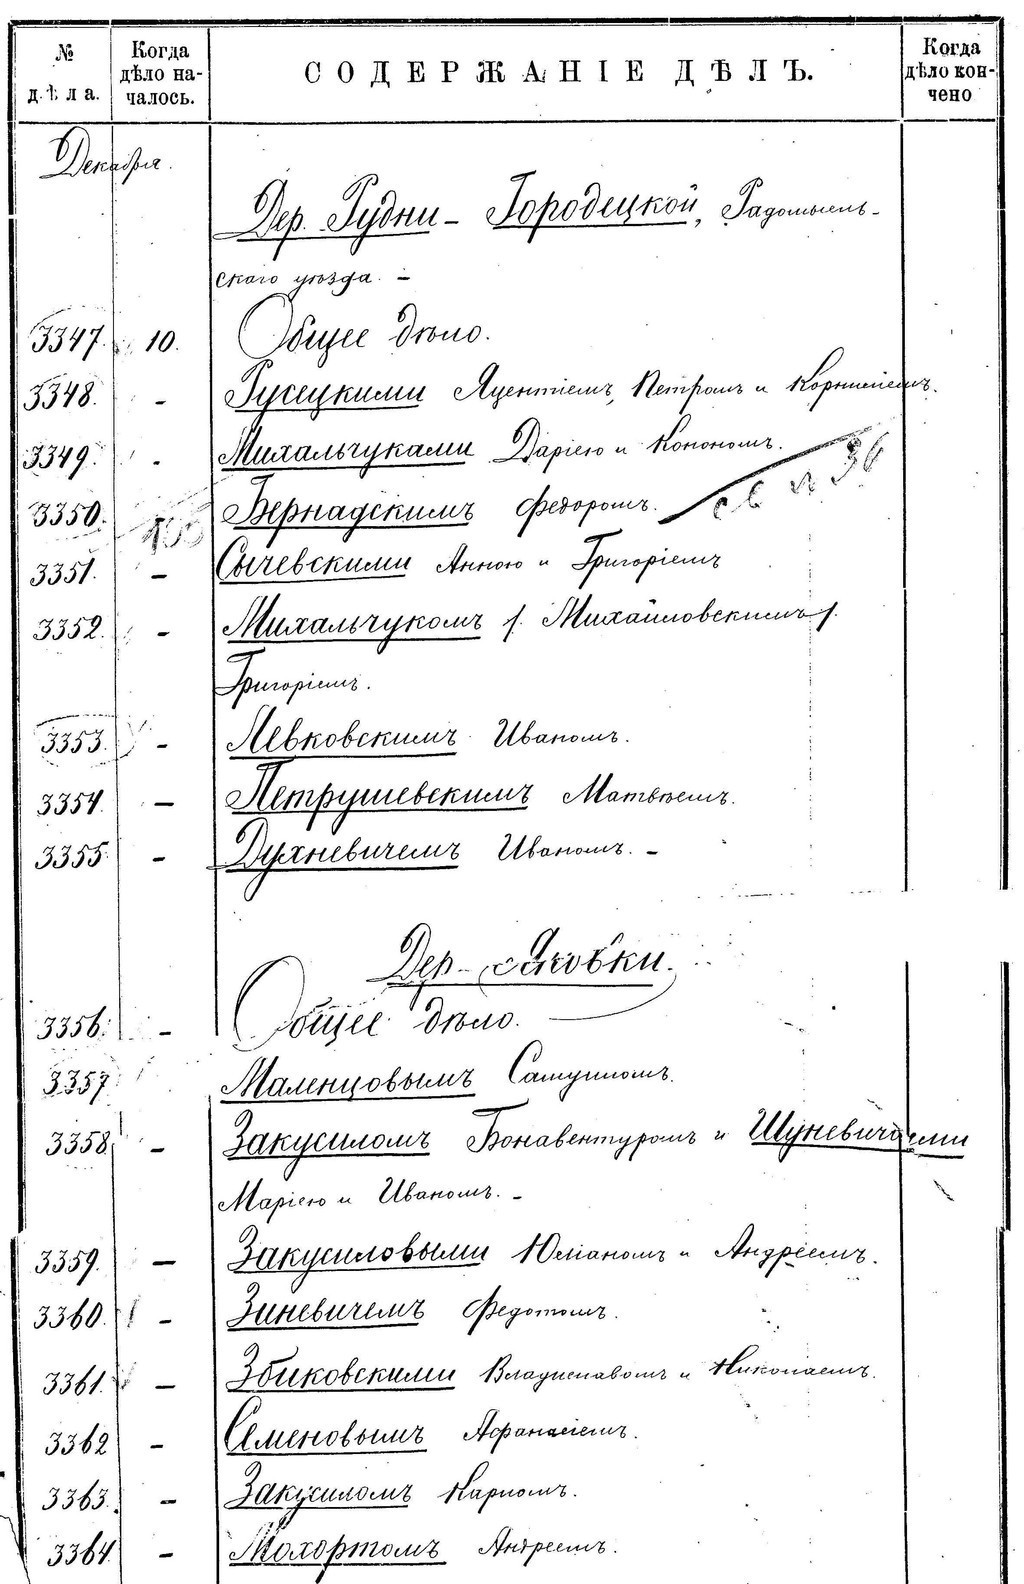 № дѣла.
Когда дѣло на-
чалось.
СОДЕРЖАНІЕ ДѢЛЪ.
Когда дѣло кон-
чено
Декабря.
Дер. Рудни - Городецкой, Радомысль-
скаго уѣзда. -
3347. 10. Общее дѣло.
3348. - Русецкими Яцентіемъ, Петромъ и Корниліемъ.
3349. - Михальчуками Даріею и Конономъ.
3350. Бернадскимъ Федоромъ. 36
3351. - Сычевскими Анною и Григоріемъ
3352. - Михальчукомъ /. Михайловскимъ /.
Григоріемъ.
3353. - Левковскимъ Иваномъ.
3354. - Петрушевскимъ Матвѣемъ.
3355. - Духневичемъ Иваномъ. -
Дер.
3356. - Общее дѣло.
3357 Маленцовымъ
3358. - Закусиломъ Бонавентуромъ и Шуневичами
Маріею и Иваномъ. -
3359. - Закусиловыми Юліаномъ и Андріемъ.
3360. - Зиневичемъ Федотомъ.
3361. - Збиковскими Владиславомъ и Николаемъ.
3362 - Семеновымъ Афанасіемъ.
3363. - Закусиломъ Карпомъ.
3364. - Мохортомъ Андреемъ.